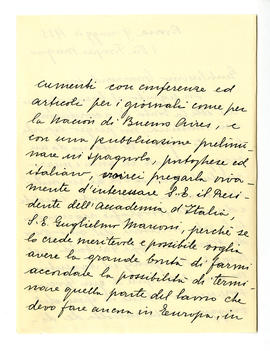 cumenti con conferenze ed
articoli per i giornali come per
la Nación di Buenos Aires, e
con una pubblicazione prelimi-
nare in spagnolo, portoghese ed
italiano, vorrei pregarla viva-
mente d'interessare S.E. il Presi-
dente dell'Accademia d'Italia,
S.E. Guglielmo Marconi, perché se
lo crede meritevole e possibile voglia
avere la grande bontà di farmi
accordare la possibilità di termi-
nare quella parte del lavoro che
devo fare ancora in Europa, in